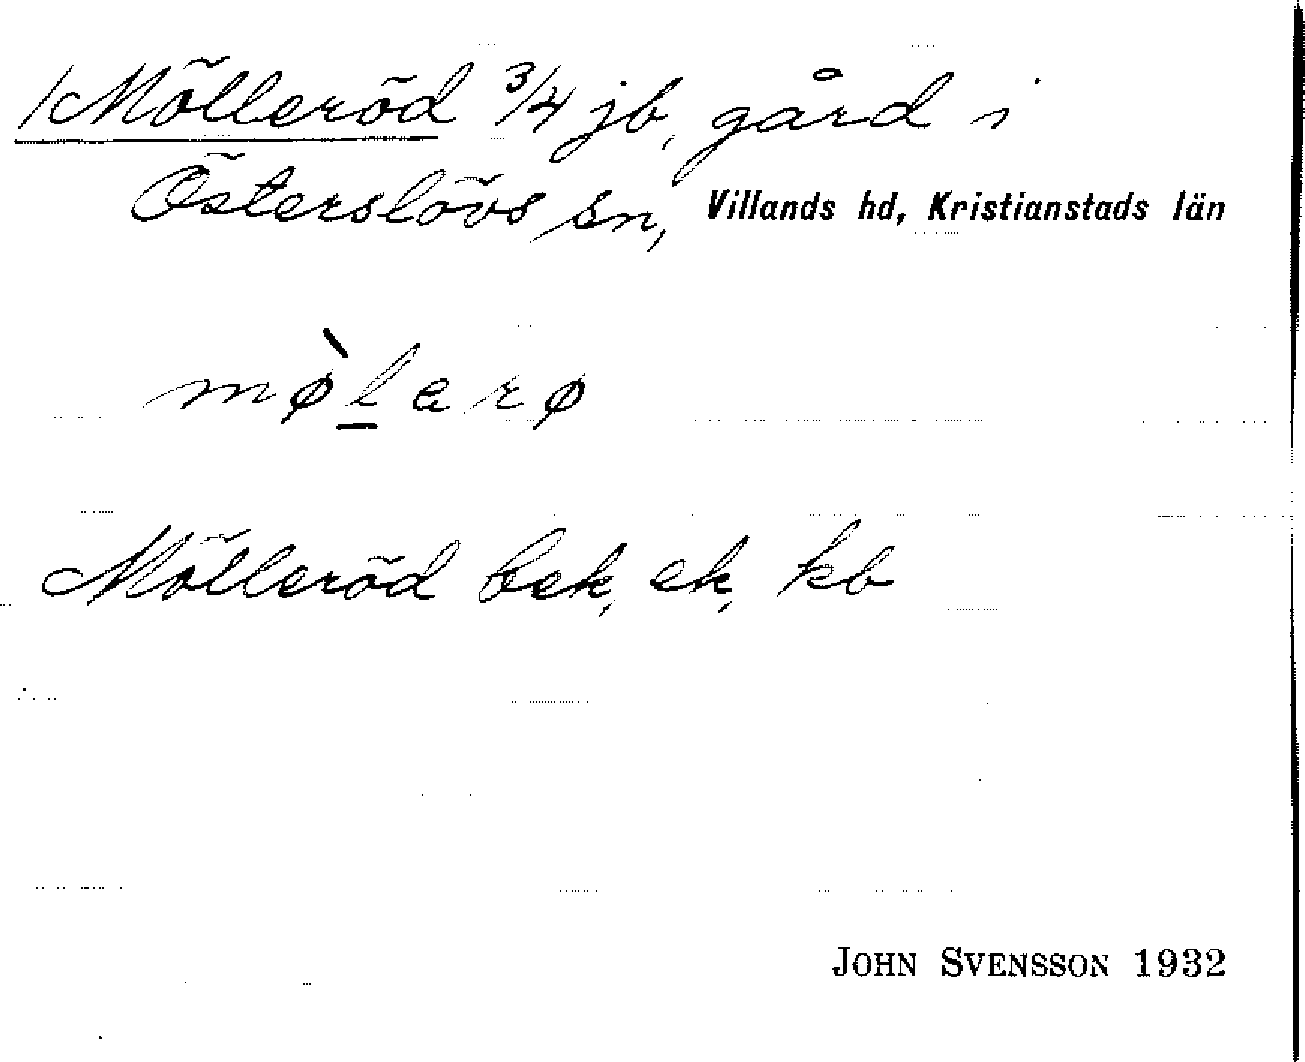 /Mölleröd 3/4 jb, gård i
Österslövs sn, Villands hd, Kristianstads län
mø̀l̲arø
Mölleröd bek, ek, kb
JOHN SVENSSON 1932